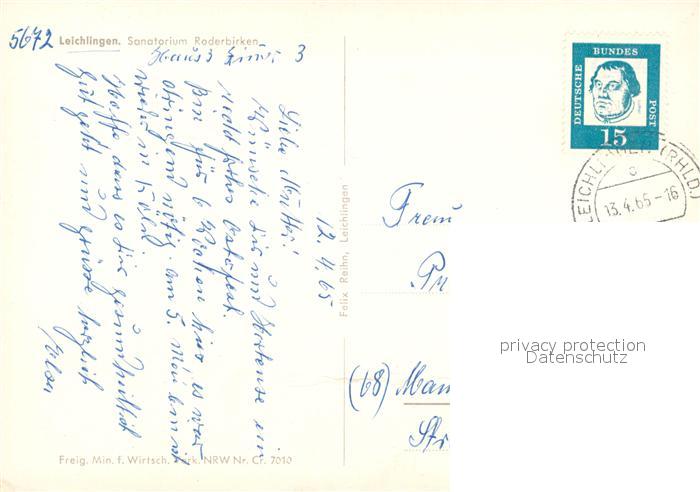 5672 Leichlingen. Sanatorium Roderbirken
Haus 3 Zimm. 3
12.4.65
Liebe Mutter!
Wünsche Dir und Hortense ein
recht frohes Osterfest.
Bin für 6 Wochen hier es war
dringend nötig. am 5. Mai bin ich
wieder in
Hoffe dass es Dir gesundheitlich
gut geht und grüsse herzlich
Freig. Min. f. Wirtsch. Verk. NRW Nr. Cr. 7010
Felix Reihn, Leichlingen
DEUTSCHE BUNDES POST
15
LEICHLINGEN (RHLD)
c
13.4.65-16
Frau
(68) Man
Str
privacy protection
Datenschutz